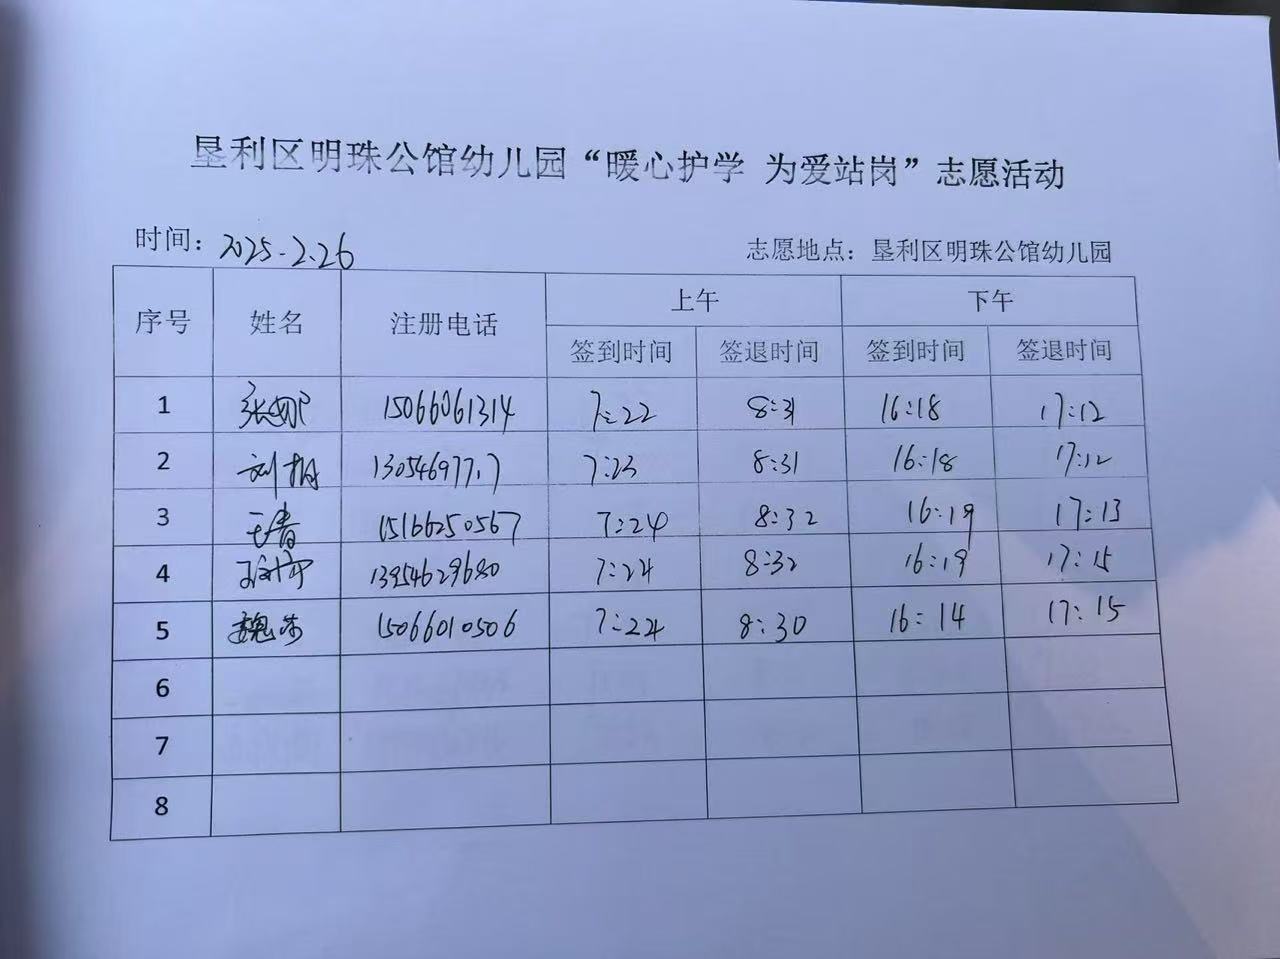 垦利区明珠公馆幼儿园“暖心护学 为爱站岗”志愿活动
时间：2025.2.26 志愿地点：垦利区明珠公馆幼儿园
序号 姓名 注册电话 上午 下午
签到时间 签退时间 签到时间 签退时间
1 张娜 15066061314 7:22 8:31 16:18 17:12
2 刘 7:23 8:31 16:18 17:12
3 王春 15166250567 7:24 8:32 16:19 17:13
4 13954629680 7:24 8:32 16:19 17:15
5 魏 15066010506 7:24 8:30 16:14 17:15
6
7
8